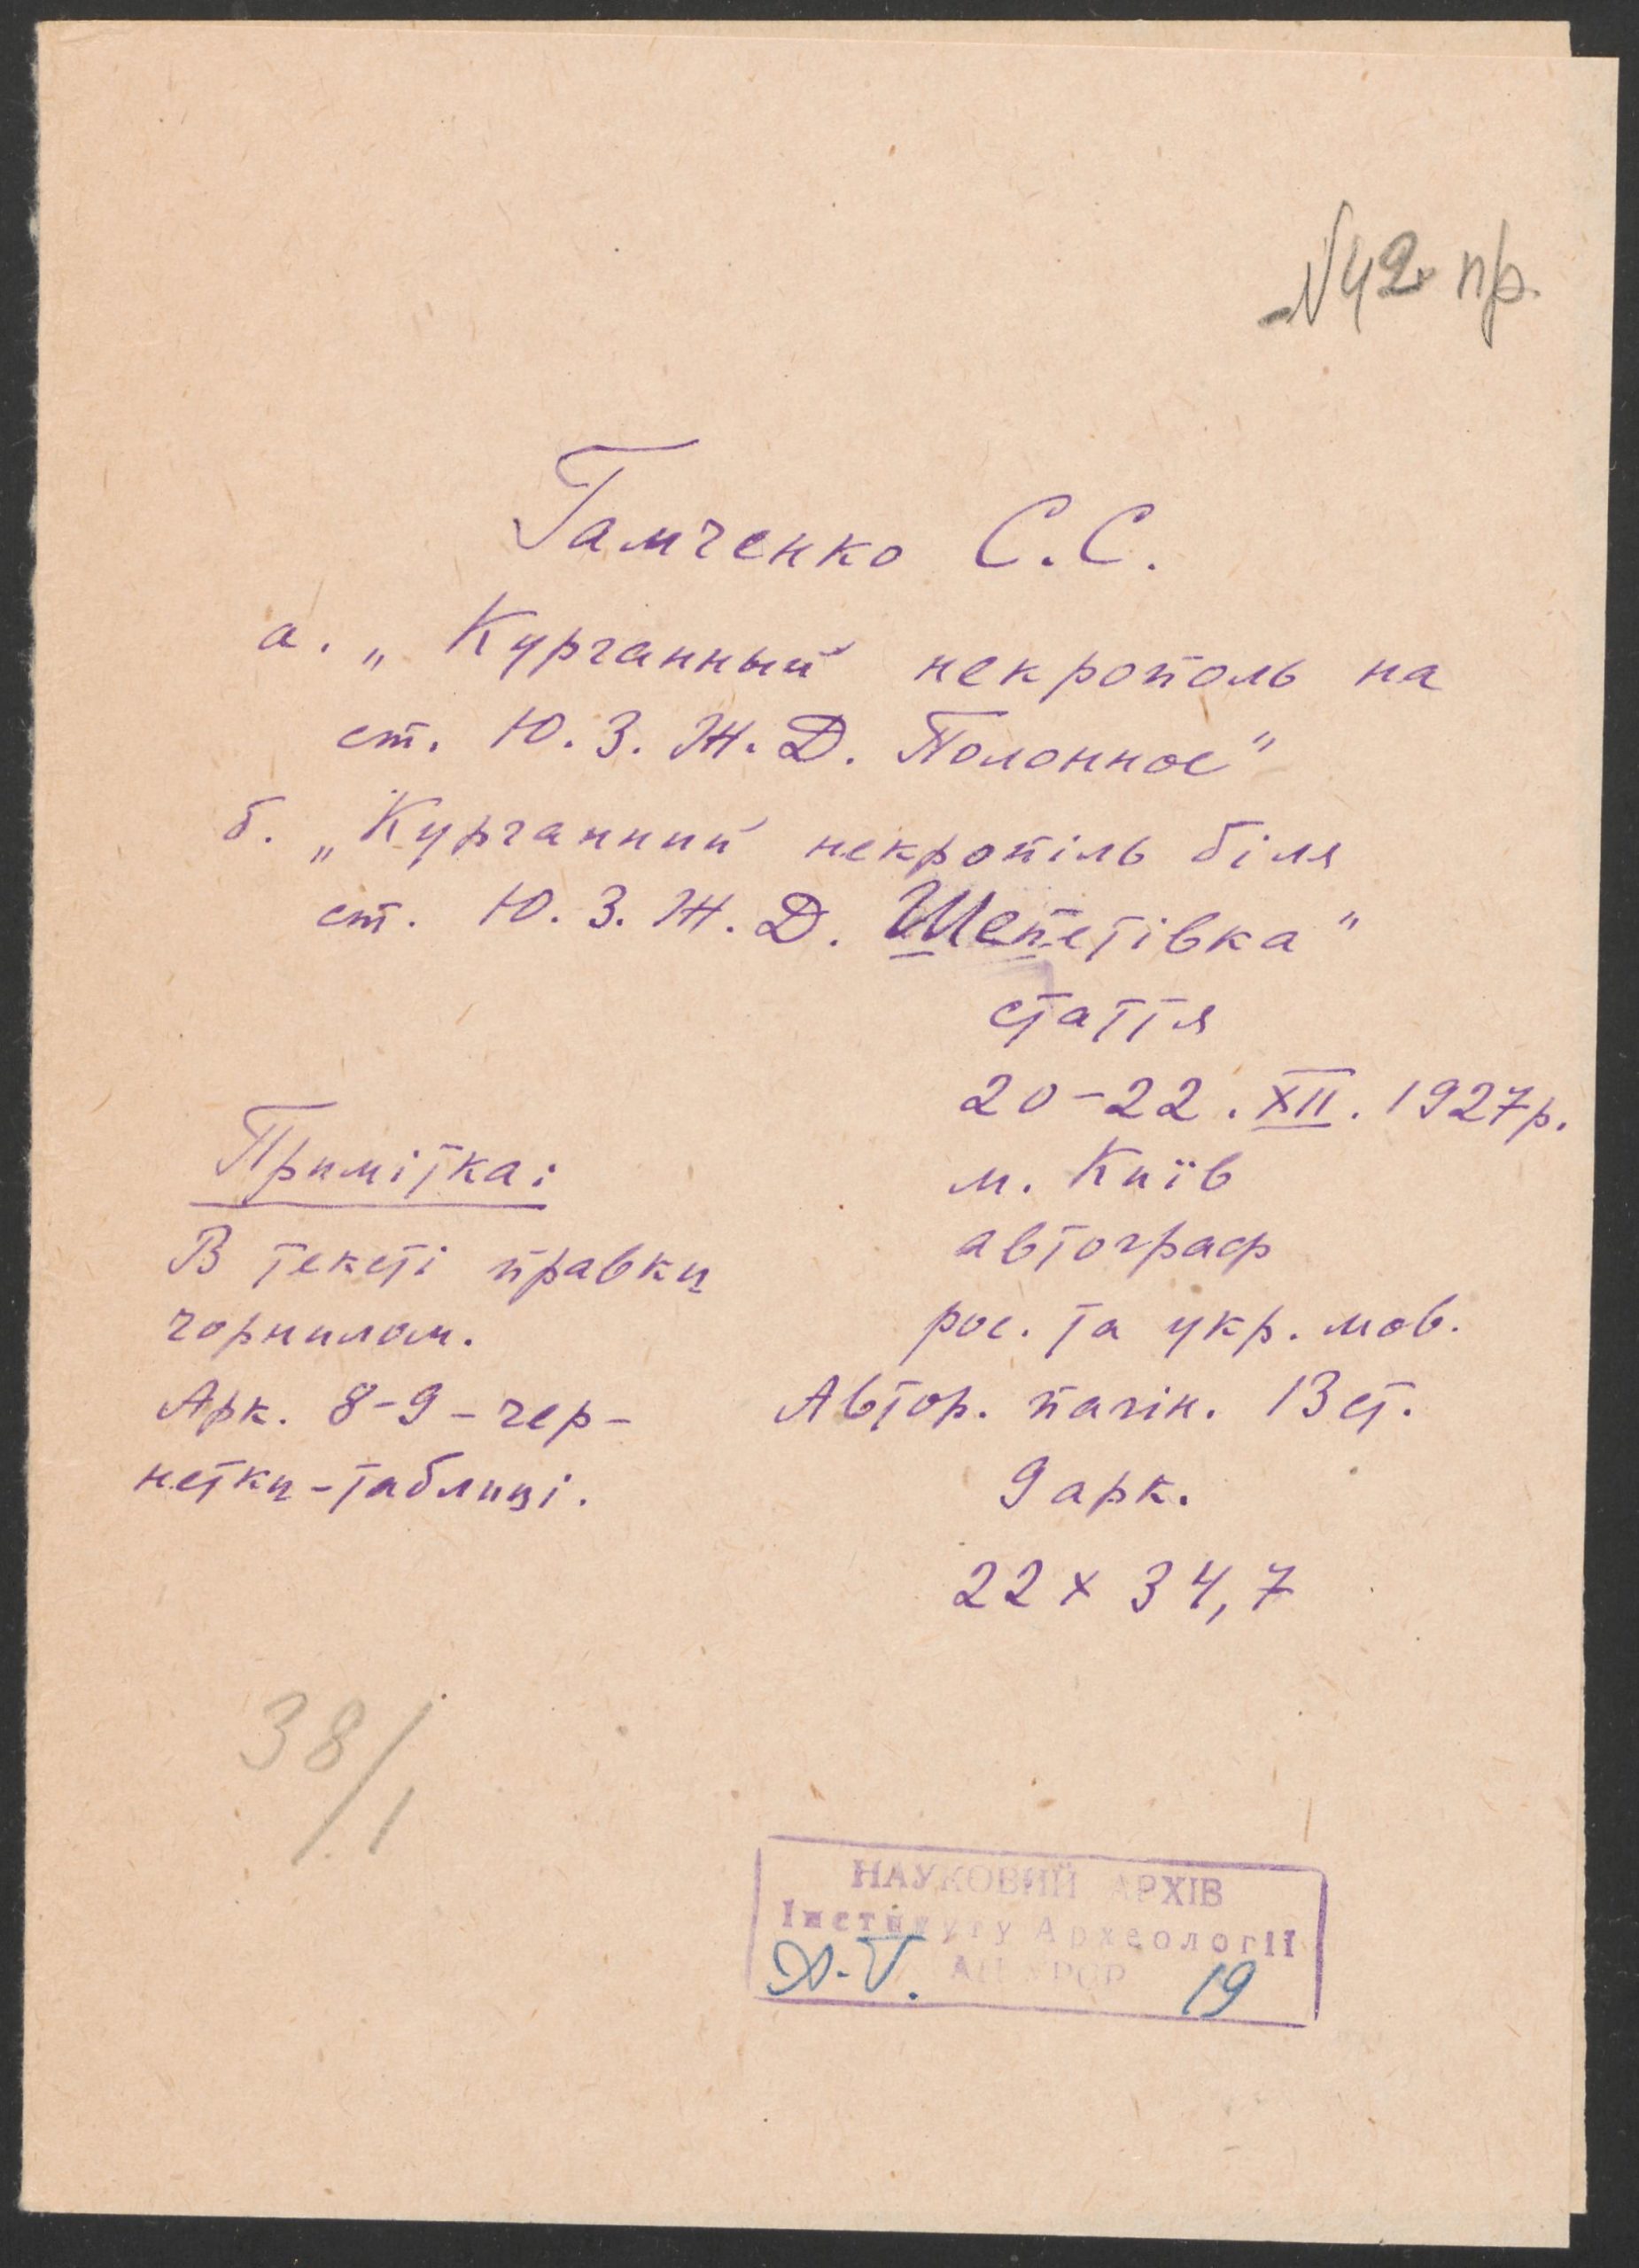 №42 пр.
Гамченко С.С.
а. „Курганный некрополь на
ст. Ю.З.Ж.Д. Полонное"
б. „Курганний некропіль біля
ст. Ю.З.Ж.Д. Шепетівка"
стаття
20-22.XII.1927р.
м. Київ
автограф
рос. та укр. мов.
Автор. пагін. 13 ст.
9 арк.
22 х 34,7
Примітка:
В тексті правки
чорнилом.
Арк. 8-9 - чер-
нетки-таблиці.
38/1
НАУКОВИЙ АРХІВ
Інституту Археології
АН УРСР
19